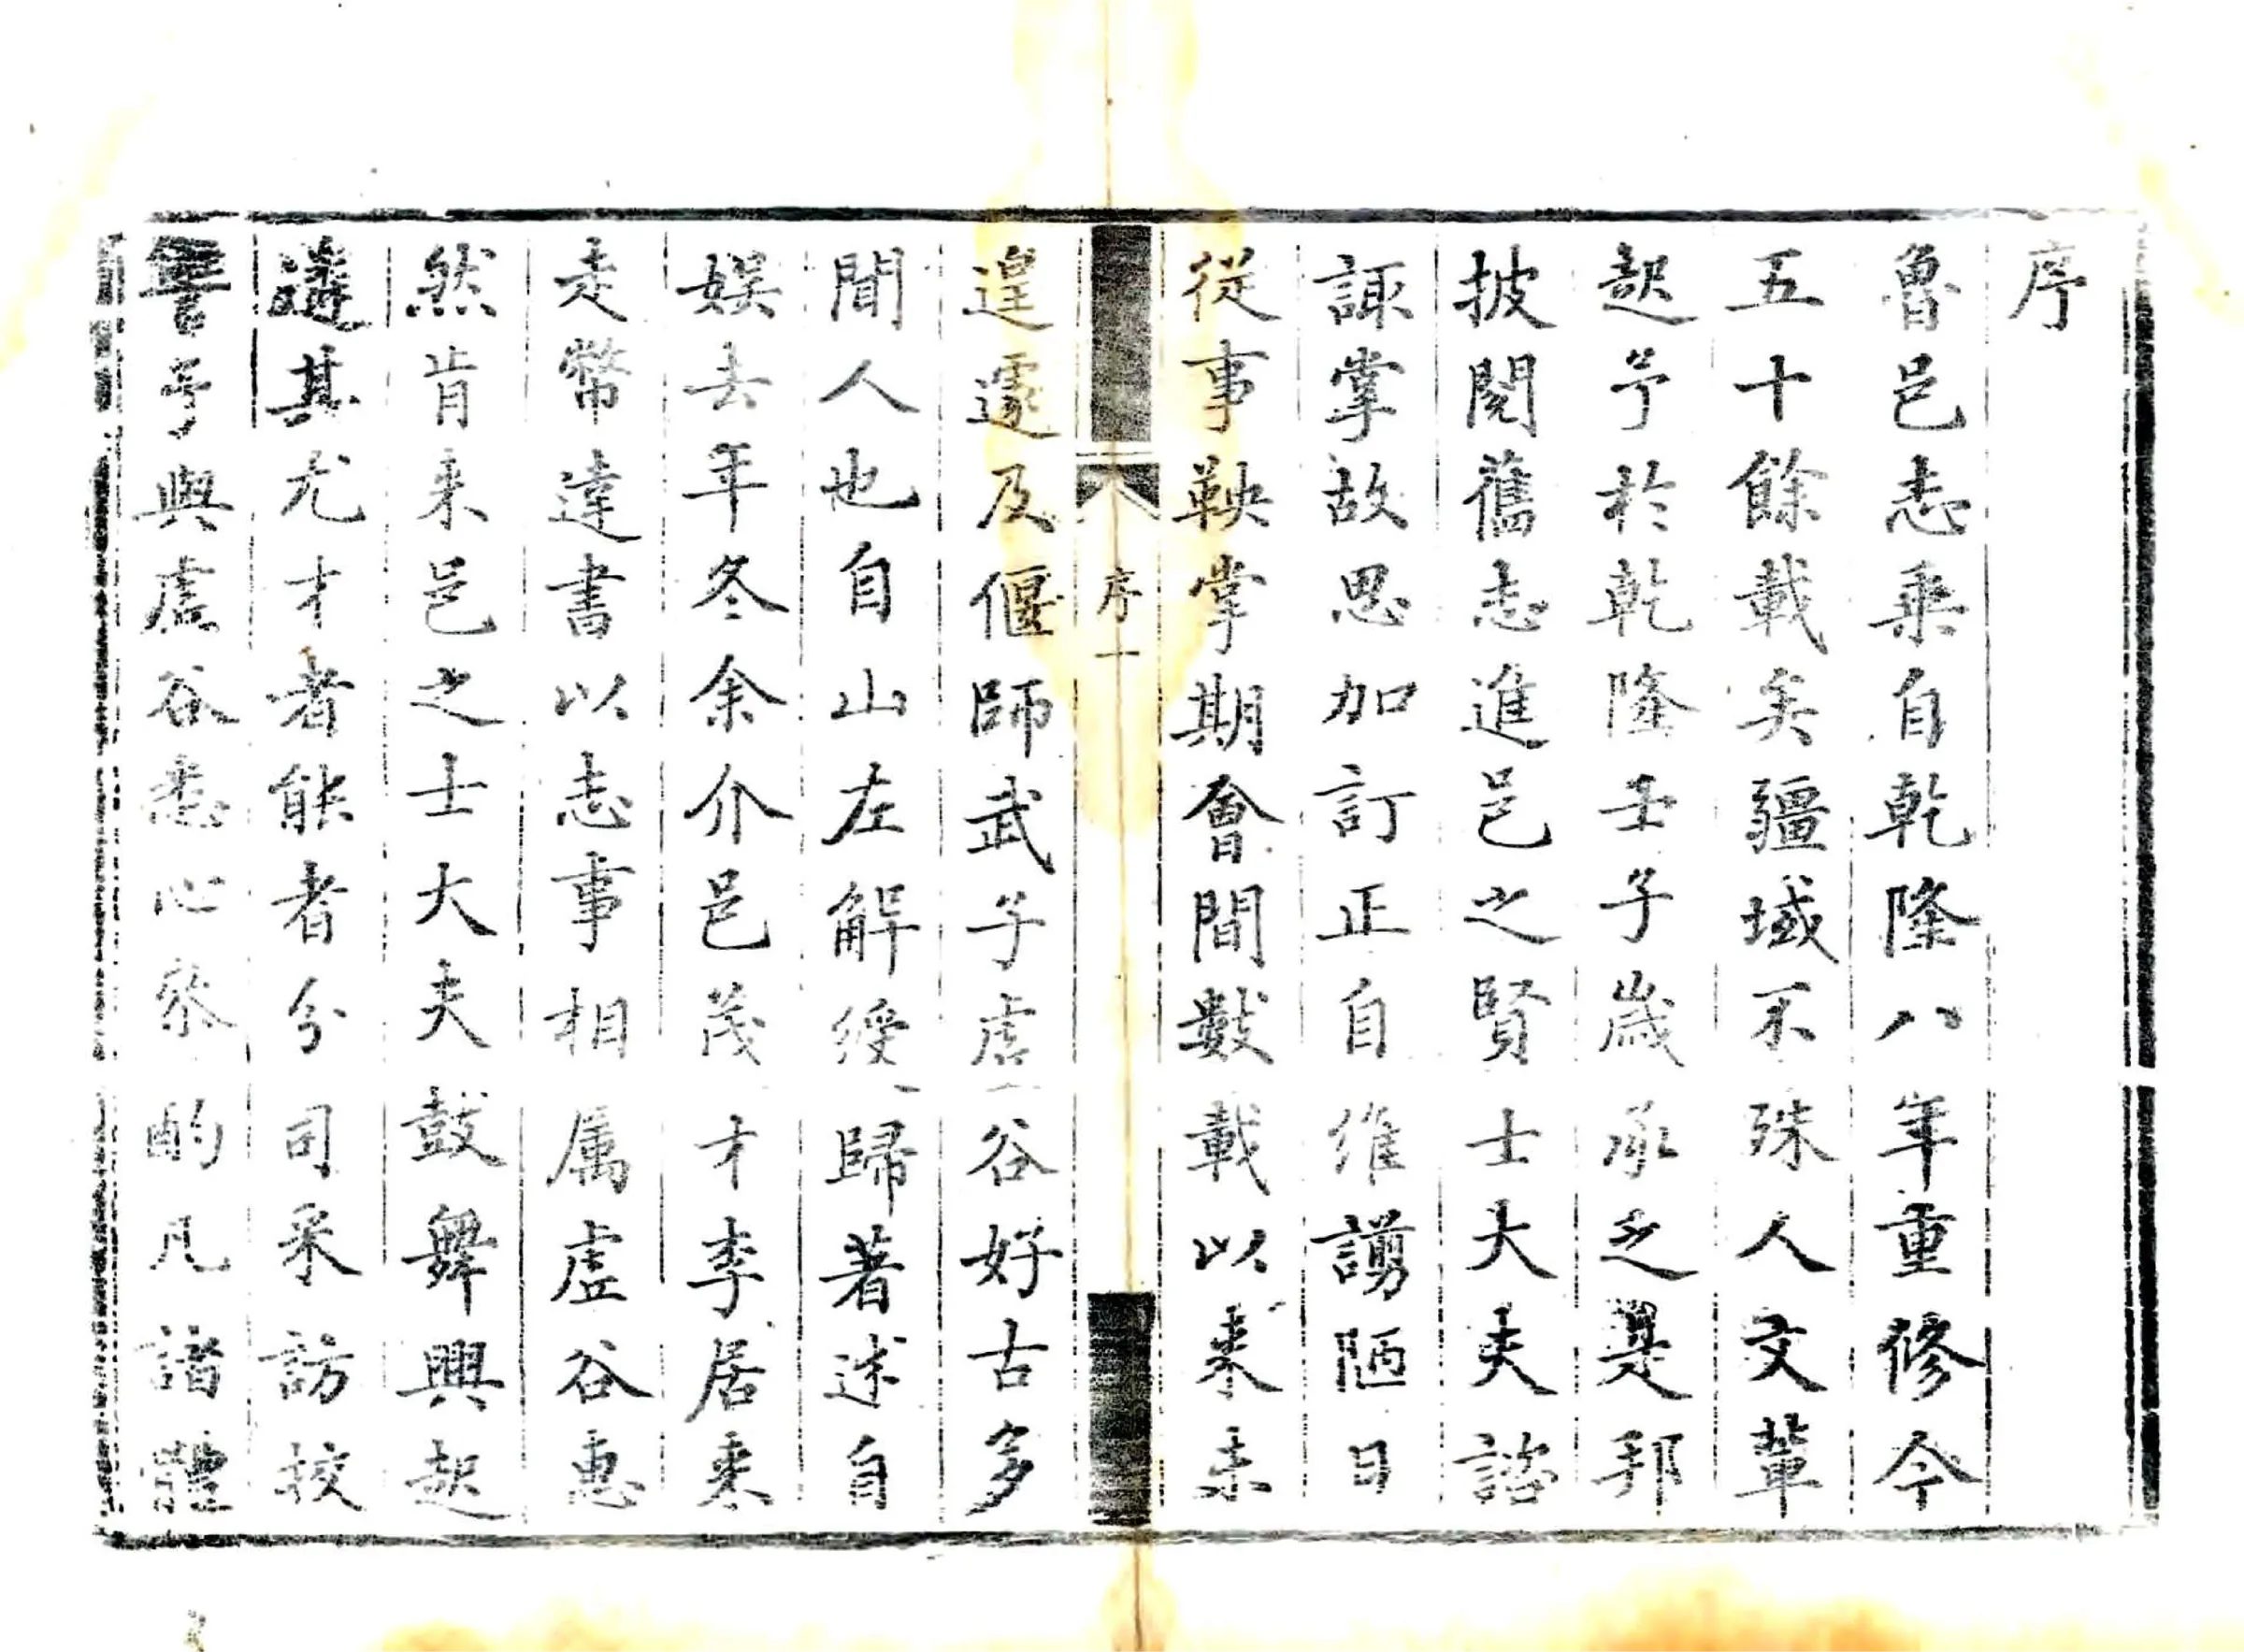 序
魯邑志乘自乾隆八年重修今
五十餘載矣疆域不殊人文輩
起予於乾隆壬子歲承乏是邦
披閱舊志進邑之賢士大夫諮
諏掌故思加訂正自維謭陋日
從事鞅掌期會間數載以來未
遑遽及偃師武子虛谷好古多
聞人也自山左解綬歸著述自
娛去年冬余介邑茂才李居來
走幣達書以志事相属虛谷惠
然肯來邑之士大夫鼓舞興起
遴其尤才者能者分司采訪挍
讐予與虛谷悉心叅酌凡諸體
序一